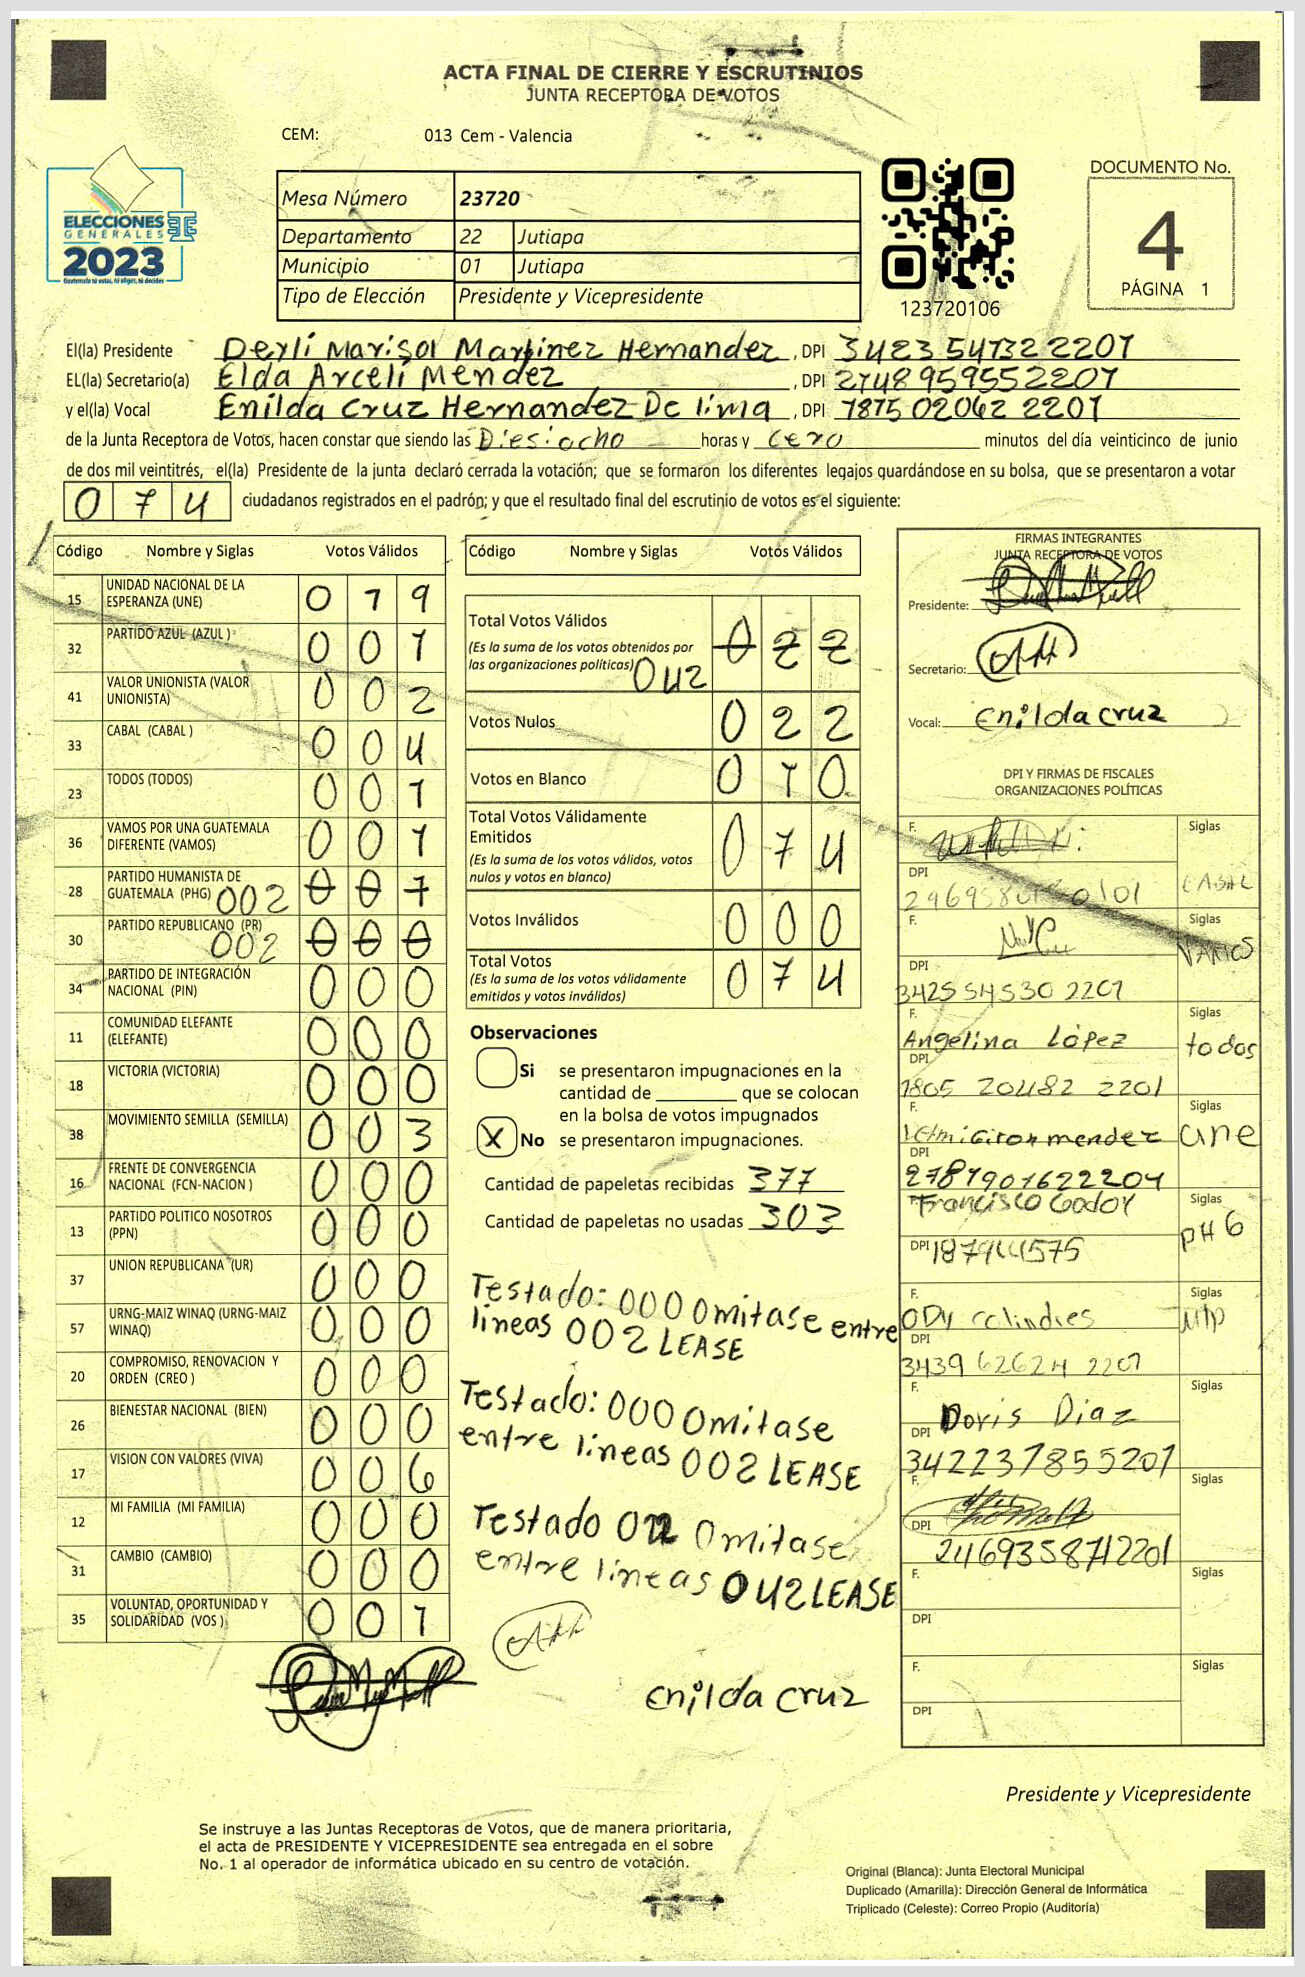 ACTA FINAL DE CIERRE Y ESCRUTINIOS
JUNTA RECEPTORA DE VOTOS
CEM: 013 Cem - Valencia
ELECCIONES
GENERALES
2023
Guatemala tú votas, tú eliges, tú decides
Mesa Número 23720
Departamento 22 Jutiapa
Municipio 01 Jutiapa
Tipo de Elección Presidente y Vicepresidente
123720106
DOCUMENTO No.
4
PÁGINA 1
El(la) Presidente Derli Marisol Martinez Hernandez, DPI 3423 54732 2201
EL(la) Secretario(a) Elda Arceli Mendez, DPI 2748 95955 2207
y el(la) Vocal Enilda Cruz Hernandez De lima, DPI 7875 02062 2201
de la Junta Receptora de Votos, hacen constar que siendo las Diesiocho horas y cero minutos del día veinticinco de junio
de dos mil veintitrés, el(la) Presidente de la junta declaró cerrada la votación; que se formaron los diferentes legajos guardándose en su bolsa, que se presentaron a votar
074 ciudadanos registrados en el padrón; y que el resultado final del escrutinio de votos es el siguiente:
Código Nombre y Siglas Votos Válidos
15 UNIDAD NACIONAL DE LA ESPERANZA (UNE) 019
32 PARTIDO AZUL (AZUL) 001
41 VALOR UNIONISTA (VALOR UNIONISTA) 002
33 CABAL (CABAL) 004
23 TODOS (TODOS) 001
36 VAMOS POR UNA GUATEMALA DIFERENTE (VAMOS) 001
28 PARTIDO HUMANISTA DE GUATEMALA (PHG) 002 001
30 PARTIDO REPUBLICANO (PR) 002 000
34 PARTIDO DE INTEGRACIÓN NACIONAL (PIN) 000
11 COMUNIDAD ELEFANTE (ELEFANTE) 000
18 VICTORIA (VICTORIA) 000
38 MOVIMIENTO SEMILLA (SEMILLA) 003
16 FRENTE DE CONVERGENCIA NACIONAL (FCN-NACION) 000
13 PARTIDO POLITICO NOSOTROS (PPN) 000
37 UNION REPUBLICANA (UR) 000
57 URNG-MAIZ WINAQ (URNG-MAIZ WINAQ) 000
20 COMPROMISO, RENOVACION Y ORDEN (CREO) 000
26 BIENESTAR NACIONAL (BIEN) 000
17 VISION CON VALORES (VIVA) 006
12 MI FAMILIA (MI FAMILIA) 000
31 CAMBIO (CAMBIO) 000
35 VOLUNTAD, OPORTUNIDAD Y SOLIDARIDAD (VOS) 001
Código Nombre y Siglas Votos Válidos
Total Votos Válidos 022
(Es la suma de los votos obtenidos por
las organizaciones políticas) 042
Votos Nulos 022
Votos en Blanco 010
Total Votos Válidamente
Emitidos 074
(Es la suma de los votos válidos, votos
nulos y votos en blanco)
Votos Inválidos 000
Total Votos 074
(Es la suma de los votos válidamente
emitidos y votos inválidos)
Observaciones
Si se presentaron impugnaciones en la
cantidad de ________ que se colocan
en la bolsa de votos impugnados
X No se presentaron impugnaciones.
Cantidad de papeletas recibidas 377
Cantidad de papeletas no usadas 303
Testado: 000 Omitase entre
lineas 002 LEASE
Testado: 000 Omitase
entre lineas 002 LEASE
Testado 022 Omitase
entre lineas 042 LEASE
Enilda cruz
FIRMAS INTEGRANTES
JUNTA RECEPTORA DE VOTOS
Presidente:
Secretario:
Vocal: Enilda cruz
DPI Y FIRMAS DE FISCALES
ORGANIZACIONES POLÍTICAS
F. Siglas
DPI CABAL
F. Siglas
VAMOS
DPI
3425 54530 2201
F. Angelina López Siglas
todos
DPI
1805 20482 2201
F. Siglas
une
DPI
2787901622204
Francisco Godoy Siglas
PHG
DPI 187944575
F. Siglas
ODy colindres
DPI
3439 62624 2201
F. Siglas
Doris Diaz
DPI
342237855201
F. Siglas
DPI
2469358712201
F. Siglas
DPI
F. Siglas
DPI
Presidente y Vicepresidente
Se instruye a las Juntas Receptoras de Votos, que de manera prioritaria,
el acta de PRESIDENTE Y VICEPRESIDENTE sea entregada en el sobre
No. 1 al operador de informática ubicado en su centro de votación.
Original (Blanca): Junta Electoral Municipal
Duplicado (Amarilla): Dirección General de Informática
Triplicado (Celeste): Correo Propio (Auditoría)